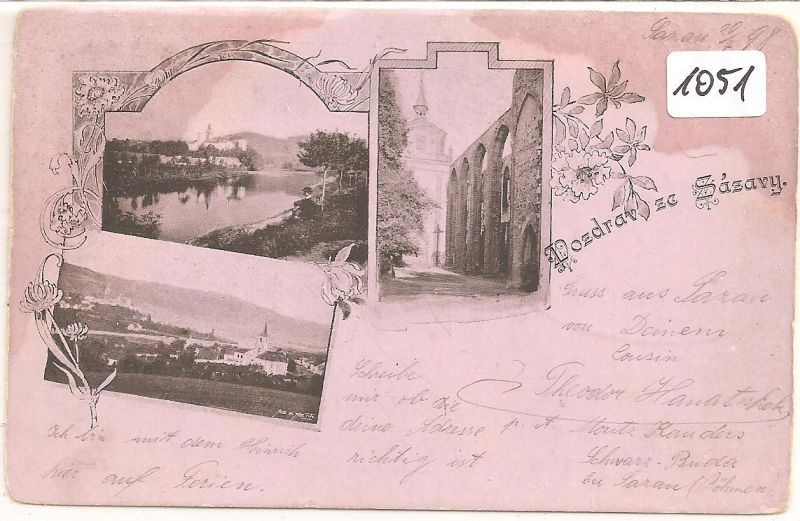 Sazau 20/7 98
1051
Pozdrav ze Sázavy.
Gruss aus Sazau
von Deinem
Cousin
Theodor Hanatschek
p. A. Moritz Kauders
Schwarz-Buda
bei Sazau (Böhmen)
Schreibe
mir ob die
deine Adresse
richtig ist
Ich bin mit dem Heinrich
hier auf Ferien.